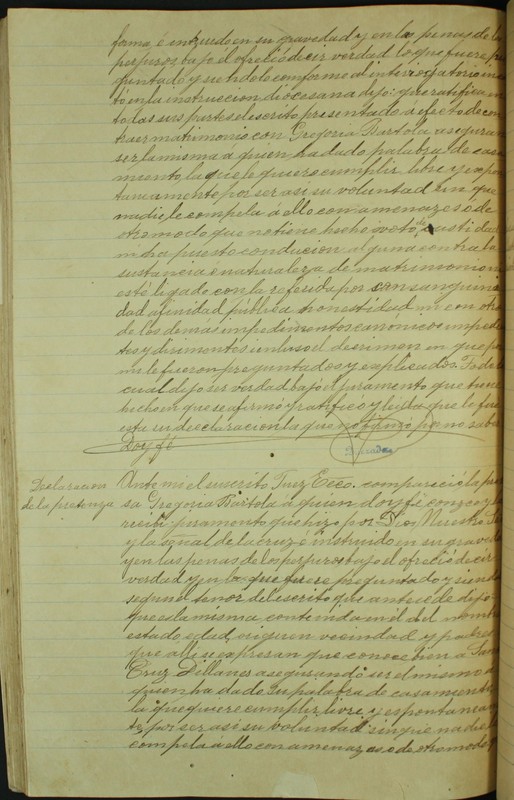 forma, é instruido en su gravedad y en las penas de los
perjuros bajo el ofreció decir verdad lo que fuere pre
guntado y siendole conforme al interrogatorio ins
tó en la instruccion diocesana dijo: que ratifica en
todas sus partes el escrito presentado á efecto de con
traer matrimonio con Gregoria Bartola, asegura
ser la misma á quien ha dado palabra de casa
miento, la que le quiere cumplir libre y espon
taneamente por ser asi su voluntad sin que
nadie le compela á ello con amenazas o de
otro modo que no tiene hecho voto de castidad
ni ha puesto condicion alguna contra la
sustancia o naturaleza de matrimonio ni
está ligado con la referida por consanguini
dad afinidad pública honestidad ni con otro
de los demas impedimentos canónicos impedien
tes y dirimentes incluso el de crimen en que por
mi le fueron preguntados y explicados. Todo lo
cual dijo ser verdad bajo el juramento que tiene
hecho en que se afirmó y ratificó y leida que le fue
esta su declaracion la que no firmó por no saber
Doy fé
Declaracion de la pretensa
Ante mi el suscrito Juez Ecco. compareció la pre
sa Gregoria Bartola á quien doy fé conozco y la
recibi juramento que hizo por Dios Nuestro Sr
y la señal de la cruz é instruido en su graveda
y en las penas de los perjuros bajo el ofreció decir
verdad y en lo que fuere preguntado y siendo
segun el tenor del escrito que antecede dijo
que es la misma contenida en él del nombre
estado, edad, origen vecindad y padres
que alli se expresan que conoce bien a San
Cruz Dillanes asegurando ser el mismo á
quien ha dado su palabra de casamiento
la que quiere cumplir libre y espontanea
te, por ser asi su voluntad sin que nadie le
compela á ello con amenazas o de otro modo q